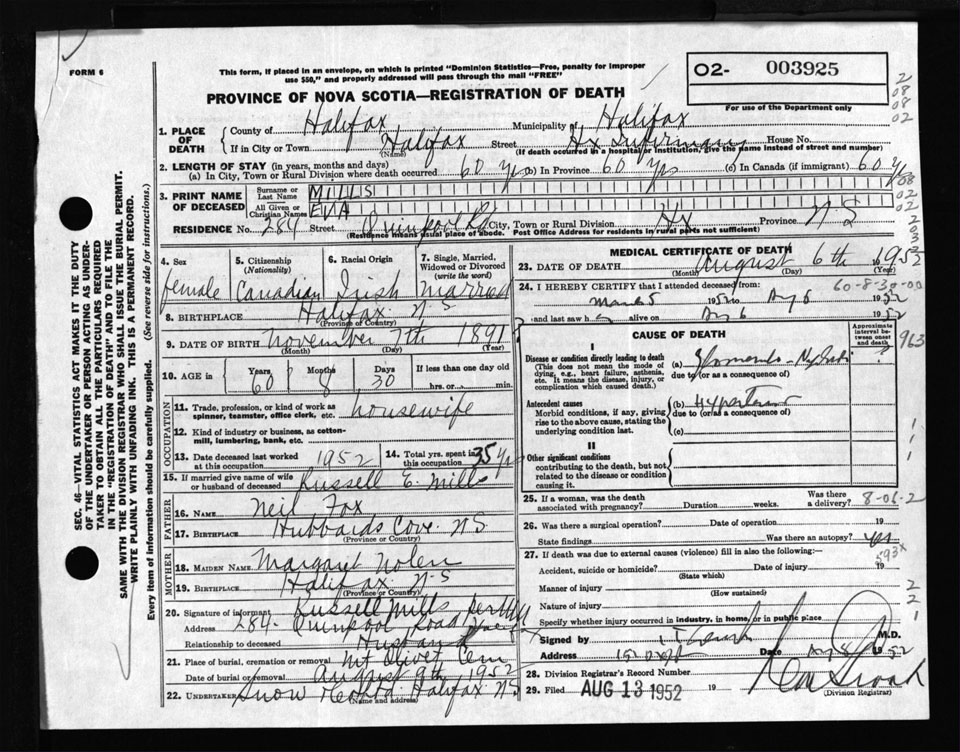 FORM 6
This form, if placed in an envelope, on which is printed "Dominion Statistics—Free, penalty for improper
use $50," and properly addressed will pass through the mail "FREE"
PROVINCE OF NOVA SCOTIA—REGISTRATION OF DEATH
02- 003925
For use of the Department only
SEC. 46—VITAL STATISTICS ACT MAKES IT THE DUTY
OF THE UNDERTAKER OR PERSON ACTING AS UNDER-
TAKER TO OBTAIN ALL THE PARTICULARS REQUIRED
IN THE "REGISTRATION OF DEATH" AND TO FILE THE
SAME WITH THE DIVISION REGISTRAR WHO SHALL ISSUE THE BURIAL PERMIT.
WRITE PLAINLY WITH UNFADING INK. THIS IS A PERMANENT RECORD.
Every item of information should be carefully supplied. (See reverse side for instructions.)
1. PLACE OF DEATH
County of Halifax Municipality of Halifax
If in City or Town Halifax Street Hx Infirmary House No.
(Name) (If death occurred in a hospital or institution, give the name instead of street and number)
2. LENGTH OF STAY (in years, months and days)
(a) In City, Town or Rural Division where death occurred 60 yrs (b) In Province 60 yrs (c) In Canada (if immigrant) 60 yrs
3. PRINT NAME OF DECEASED
Surname or Last Name MILLS
All Given or Christian Names EVA
RESIDENCE No. 284 Street Quinpool Rd City, Town or Rural Division Hx Province N S
(Residence means usual place of abode. Post Office Address for residents in rural parts not sufficient)
4. Sex
female
5. Citizenship (Nationality)
Canadian
6. Racial Origin
Irish
7. Single, Married, Widowed or Divorced (write the word)
Married
8. BIRTHPLACE Halifax N-S
(Province or Country)
9. DATE OF BIRTH November 7th 1891
(Month) (Day) (Year)
10. AGE in Years 60 Months 8 Days 30 If less than one day
hrs. or min.
OCCUPATION
11. Trade, profession, or kind of work as spinner, teamster, office clerk, etc. housewife
12. Kind of industry or business, as cotton-mill, lumbering, bank, etc.
13. Date deceased last worked at this occupation 1952 14. Total yrs. spent in this occupation 35 yrs
15. If married give name of wife or husband of deceased Russell E. Mills
FATHER
16. NAME Neil Fox
17. BIRTHPLACE Hubbards Cove N.S.
(Province or Country)
MOTHER
18. MAIDEN NAME Margaret Nolen
19. BIRTHPLACE Halifax N-S
(Province or Country)
20. Signature of informant Russell Mills
Address 284- Quinpool Road
Relationship to deceased Husband
21. Place of burial, cremation or removal Mt Olivet Cem
Date of burial or removal August 9th 1952
22. UNDERTAKER Snow Halifax NS
(Name and address)
MEDICAL CERTIFICATE OF DEATH
23. DATE OF DEATH August 6th 1952
(Month) (Day) (Year)
60-8-30-00
24. I HEREBY CERTIFY that I attended deceased from:
March 5 1952 to Aug 6 1952
and last saw h alive on Aug 6 1952
CAUSE OF DEATH
Approximate interval between onset and death
963
I
Disease or condition directly leading to death
(This does not mean the mode of dying, e.g., heart failure, asthenia, etc. It means the disease, injury, or complication which caused death.)
(a)
due to (or as a consequence of)
Antecedent causes
Morbid conditions, if any, giving rise to the above cause, stating the underlying condition last.
(b)
due to (or as a consequence of)
(c)
II
Other significant conditions
contributing to the death, but not related to the disease or condition causing it.
25. If a woman, was the death associated with pregnancy? Duration weeks. Was there a delivery? 8-06-2
26. Was there a surgical operation? Date of operation 19
State findings Was there an autopsy? yes
27. If death was due to external causes (violence) fill in also the following:— 593x
Accident, suicide or homicide? Date of injury 19
(State which)
Manner of injury
(How sustained)
Nature of injury
Specify whether injury occurred in industry, in home, or in public place
Signed by M.D.
Address Date Aug 8 1952
28. Division Registrar's Record Number
29. Filed AUG 13 1952 19
(Division Registrar)